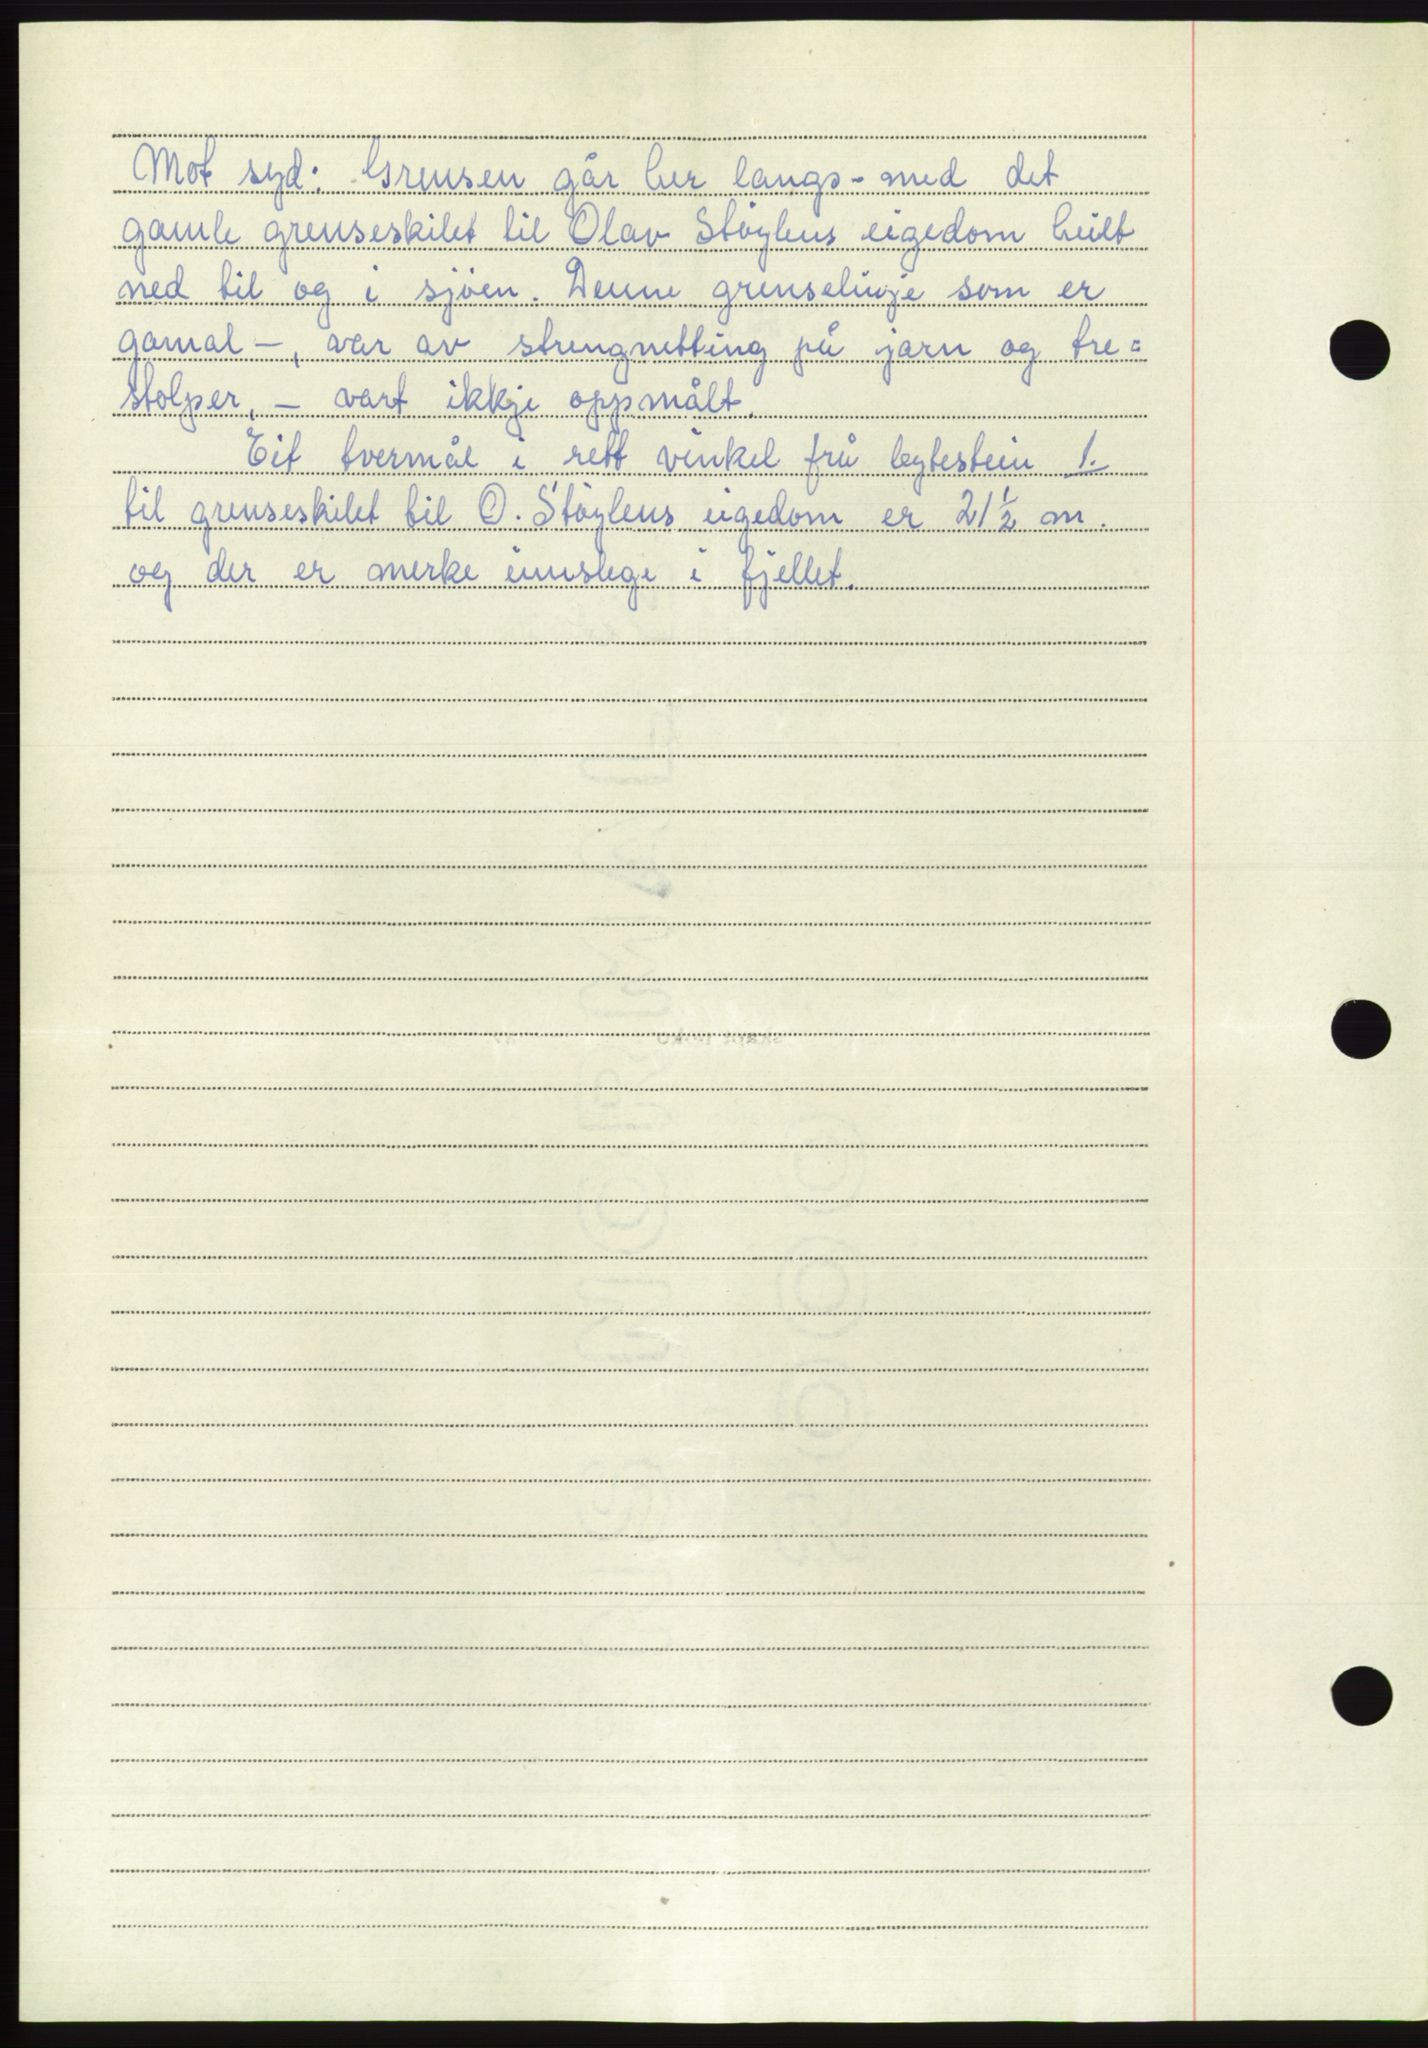 Mot syd: Grensen går her langs-med det
gamle grenseskilet til Olav Støylens eigedom heilt
ned til og i sjøen. Denne grenselinje som er
gamal –, var av strengnetting på jarn og tre=
stolper, – vart ikkje oppmålt.
Eit tvermål i rett vinkel frå bytestein 1.
til grenseskilet til O. Støylens eigedom er 21 1/2 m.
og der er merke innslege i fjellet.